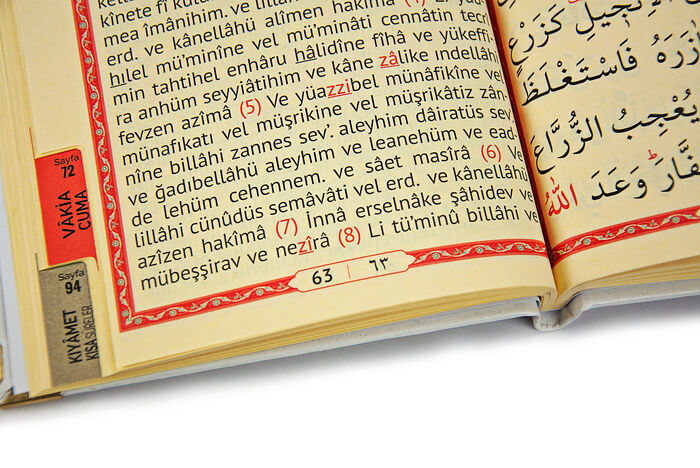 kînete fî
mea îmânihim. ve lillâhi
erd. ve kânellâhü alîmen hakîmâ
hılel mü'minîne vel mü'minâti cennâtin tecrî
min tahtihel enhâru hâlidîne fîhâ ve yükeffi-
ra anhüm seyyiâtihim ve kâne zâlike indellâhi
fevzen azîmâ (5) Ve yüazzibel münâfikîne vel
münafıkatı vel müşrikîne vel müşrikâtiz zân-
nîne billâhi zannes sev'. aleyhim dâiratüs sev'
ve ğadıbellâhü aleyhim ve leanehüm ve ead-
de lehüm cehennem. ve sâet masîrâ (6) Ve
lillâhi cünûdüs semâvâti vel erd. ve kânellâhü
azîzen hakîmâ (7) İnnâ erselnâke şâhidev ve
mübeşşirav ve nezîrâ (8) Li tü'minû billâhi ve
63 | ٦٣
Sayfa
72
VÂKİA
CUMA
Sayfa
94
KIYÂMET
KISA SÛRELER
الْاِنْجٖيلِ كَزَرْعٍ
فَاسْتَغْلَظَ
يُعْجِبُ الزُّرَّاعَ
وَعَدَ اللّٰهُ